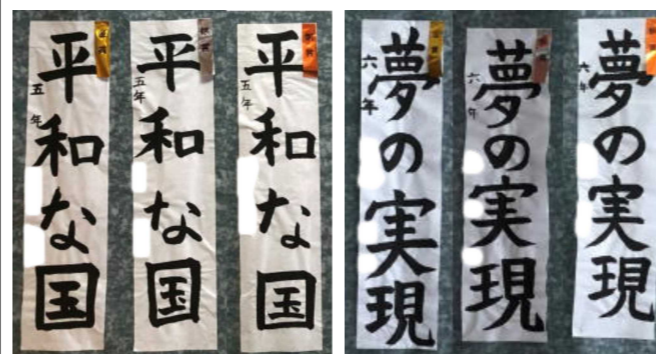 平和な国
五年
平和な国
五年
平和な国
五年
夢の実現
六年
夢の実現
六年
夢の実現
六年